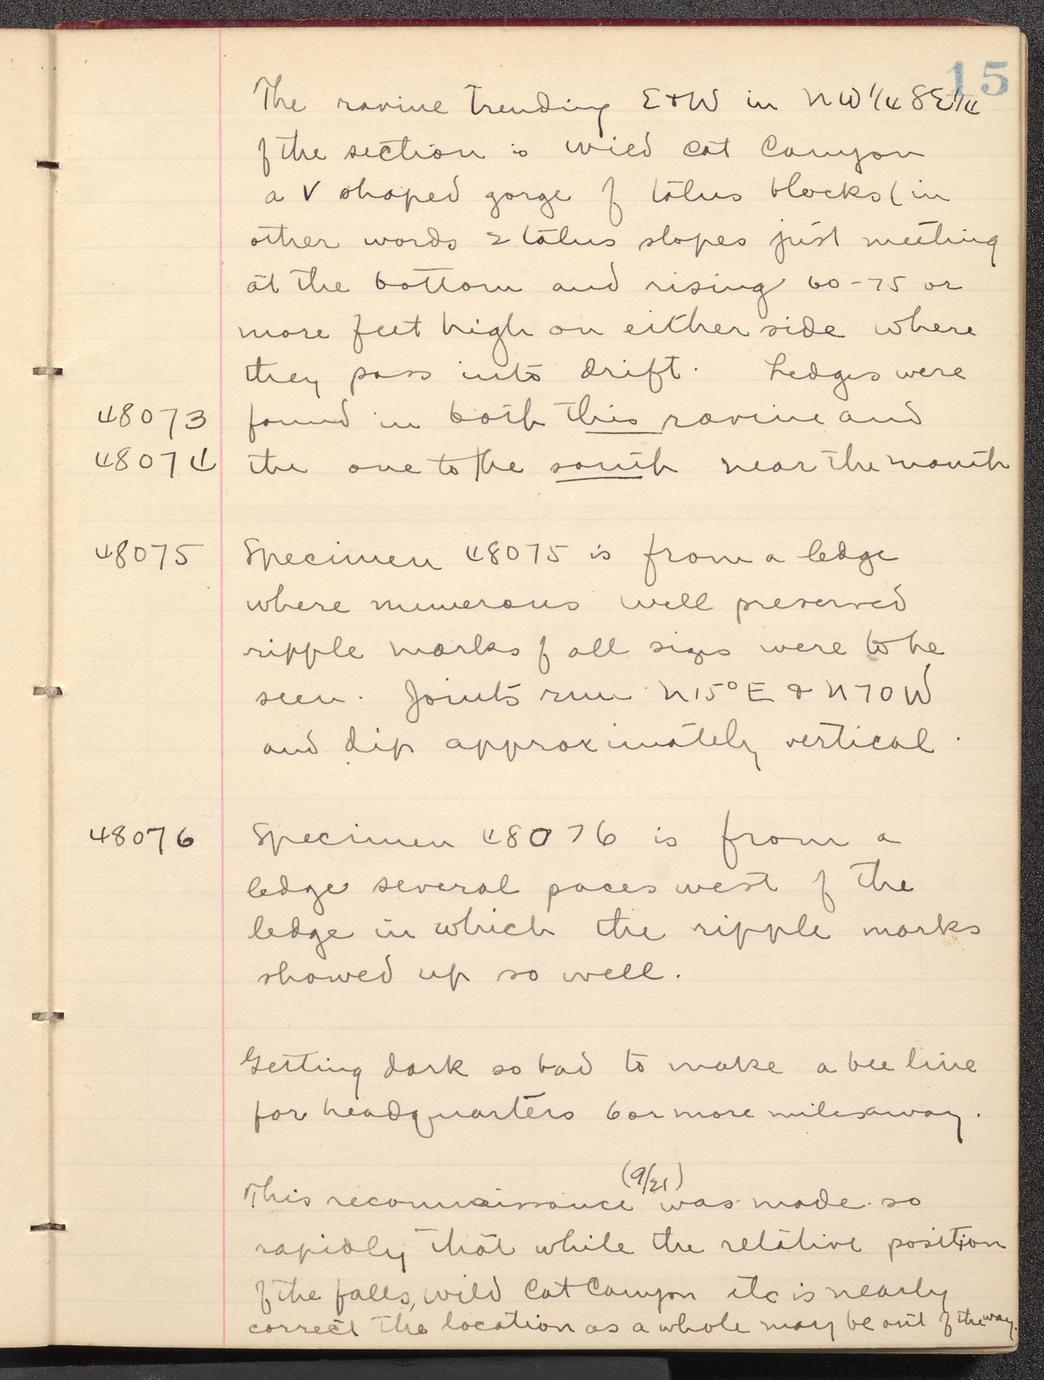 15
The ravine trending E & W in NW 1/4 SE 1/4
of the section is wild cat Canyon
a V shaped gorge of talus blocks (in
other words 2 talus slopes just meeting
at the bottom and rising 60-75 or
more feet high on either side where
they pass into drift. Ledges were
48073 found in both this ravine and
48074 the one to the south near the mouth
48075 Specimen 48075 is from a ledge
where numerous well preserved
ripple marks of all sizes were to be
seen. Joints run N15°E & N70W
and dip approximately vertical.
48076 Specimen 48076 is from a
ledge several paces west of the
ledge in which the ripple marks
showed up so well.
Getting dark so had to make a bee line
for headquarters 6 or more miles away.
(9/21)
This reconnaissance was made so
rapidly that while the relative position
of the falls, wild Cat Canyon etc is nearly
correct the location as a whole may be out of the way.